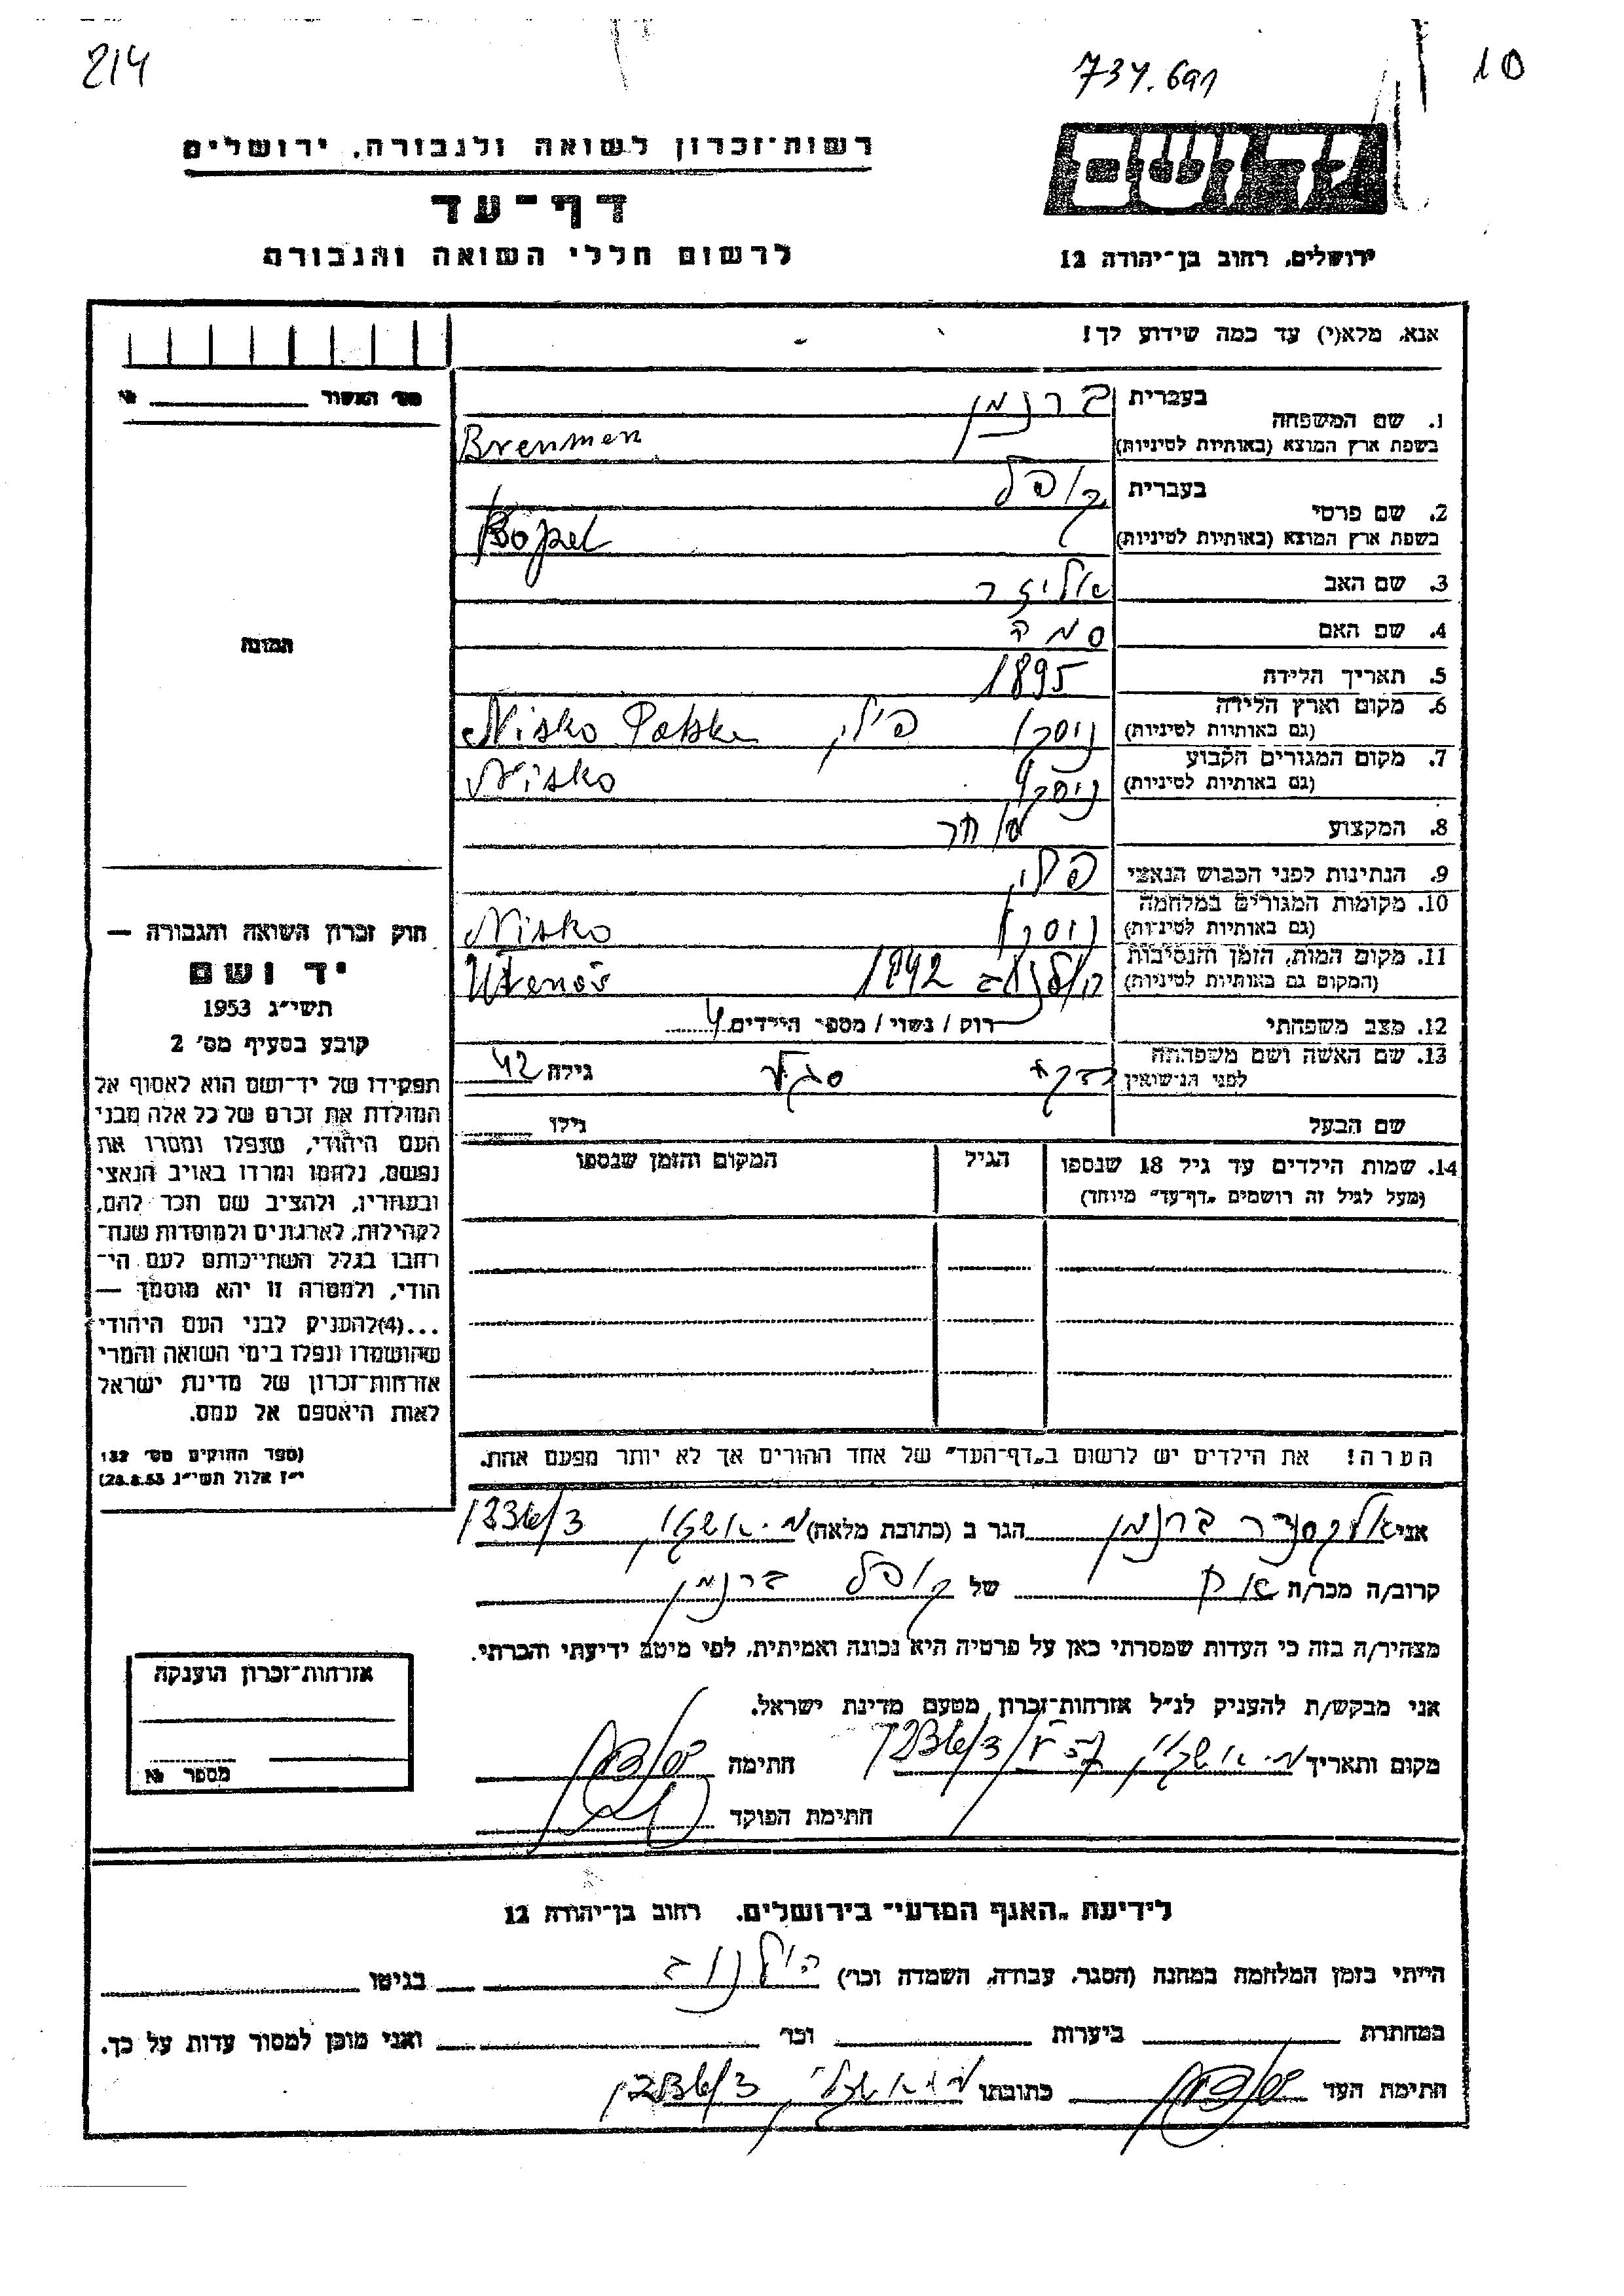 214
734.691
10
רשות־זכרון לשואה ולגבורה, ירושלים
דף־עד
לרשום חללי השואה והגבורה
יד ושם
ירושלים, רחוב בן־יהודה 12
אנא, מלא(י) עד כמה שידוע לך!
מס׳ האשור №
1. שם המשפחה בעברית ברנמן
בשפת ארץ המוצא (באותיות לטיניות) Brenmen
2. שם פרטי בעברית קופל
בשפת ארץ המוצא (באותיות לטיניות) Kopel
3. שם האב אליעזר
4. שם האם
5. תאריך הלידה 1895
6. מקום וארץ הלידה (גם באותיות לטיניות) ניסקו פולין Nisko Polska
7. מקום המגורים הקבוע (גם באותיות לטיניות) ניסקו Nisko
8. המקצוע סוחר
9. הנתינות לפני הכבוש הנאצי פולין
10. מקומות המגורים במלחמה (גם באותיות לטיניות) ניסקו Nisko
11. מקום המות, הזמן והנסיבות (המקום גם באותיות לטיניות) 1942
12. מצב משפחתי רווק / נשוי / מספר הילדים 4
13. שם האשה ושם משפחתה לפני הנישואין רבקה סגל גילה 42
שם הבעל גילו
14. שמות הילדים עד גיל 18 שנספו (מעל לגיל זה רושמים „דף־עד״ מיוחד)
הגיל
המקום והזמן שנספו
הערה! את הילדים יש לרשום ב„דף־העד״ של אחד ההורים אך לא יותר מפעם אחת.
התמונה
חוק זכרון השואה והגבורה —
יד ושם
תשי״ג 1953
קובע בסעיף מס׳ 2
תפקידו של יד־ושם הוא לאסוף אל
המולדת את זכרם של כל אלה מבני
העם היהודי, שנפלו ומסרו את
נפשם, נלחמו ומרדו באויב הנאצי
ובעוזריו, ולהציב שם וזכר להם,
לקהילות, לארגונים ולמוסדות שנח־
רבו בגלל השתייכותם לעם הי־
הודי, ולמטרה זו יהא מוסמך —
...(4) להעניק לבני העם היהודי
שהושמדו ונפלו בימי השואה והמרי
אזרחות־זכרון של מדינת ישראל
לאות היאספם אל עמם.
(ספר החוקים מס׳ 132
י״ז אלול תשי״ג 28.8.53)
אני אלכסנדר ברנמן הגר ב (כתובת מלאה) מ. אשקלון 1236/3
קרוב/ה מכר/ה אח של קופל ברנמן
מצהיר/ה בזה כי העדות שמסרתי כאן על פרטיה היא נכונה ואמיתית, לפי מיטב ידיעתי והכרתי.
אני מבקש/ת להעניק לנ״ל אזרחות־זכרון מטעם מדינת ישראל.
מקום ותאריך מ. אשקלון 1236/3 חתימה
חתימת הפוקד
אזרחות־זכרון הוענקה
מספר №
לידיעת „האגף המדעי״ בירושלים. רחוב בן־יהודה 12
הייתי בזמן המלחמה במחנה (הסגר, עבודה, השמדה וכו׳) בגיטו
במחתרת ביערות וכו׳ ואני מוכן למסור עדות על כך.
חתימת העד כתובתו מ. אשקלון 1236/3